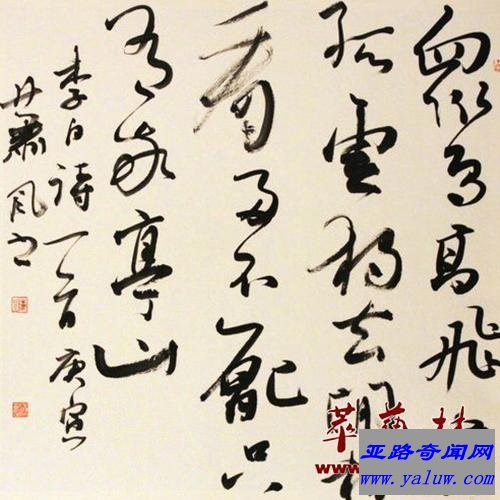 眾鳥高飛
孤雲獨去閒相
看兩不厭只
有敬亭山
李白詩一首庚寅
蕭風書
亚路奇闻网
www.yaluw.com